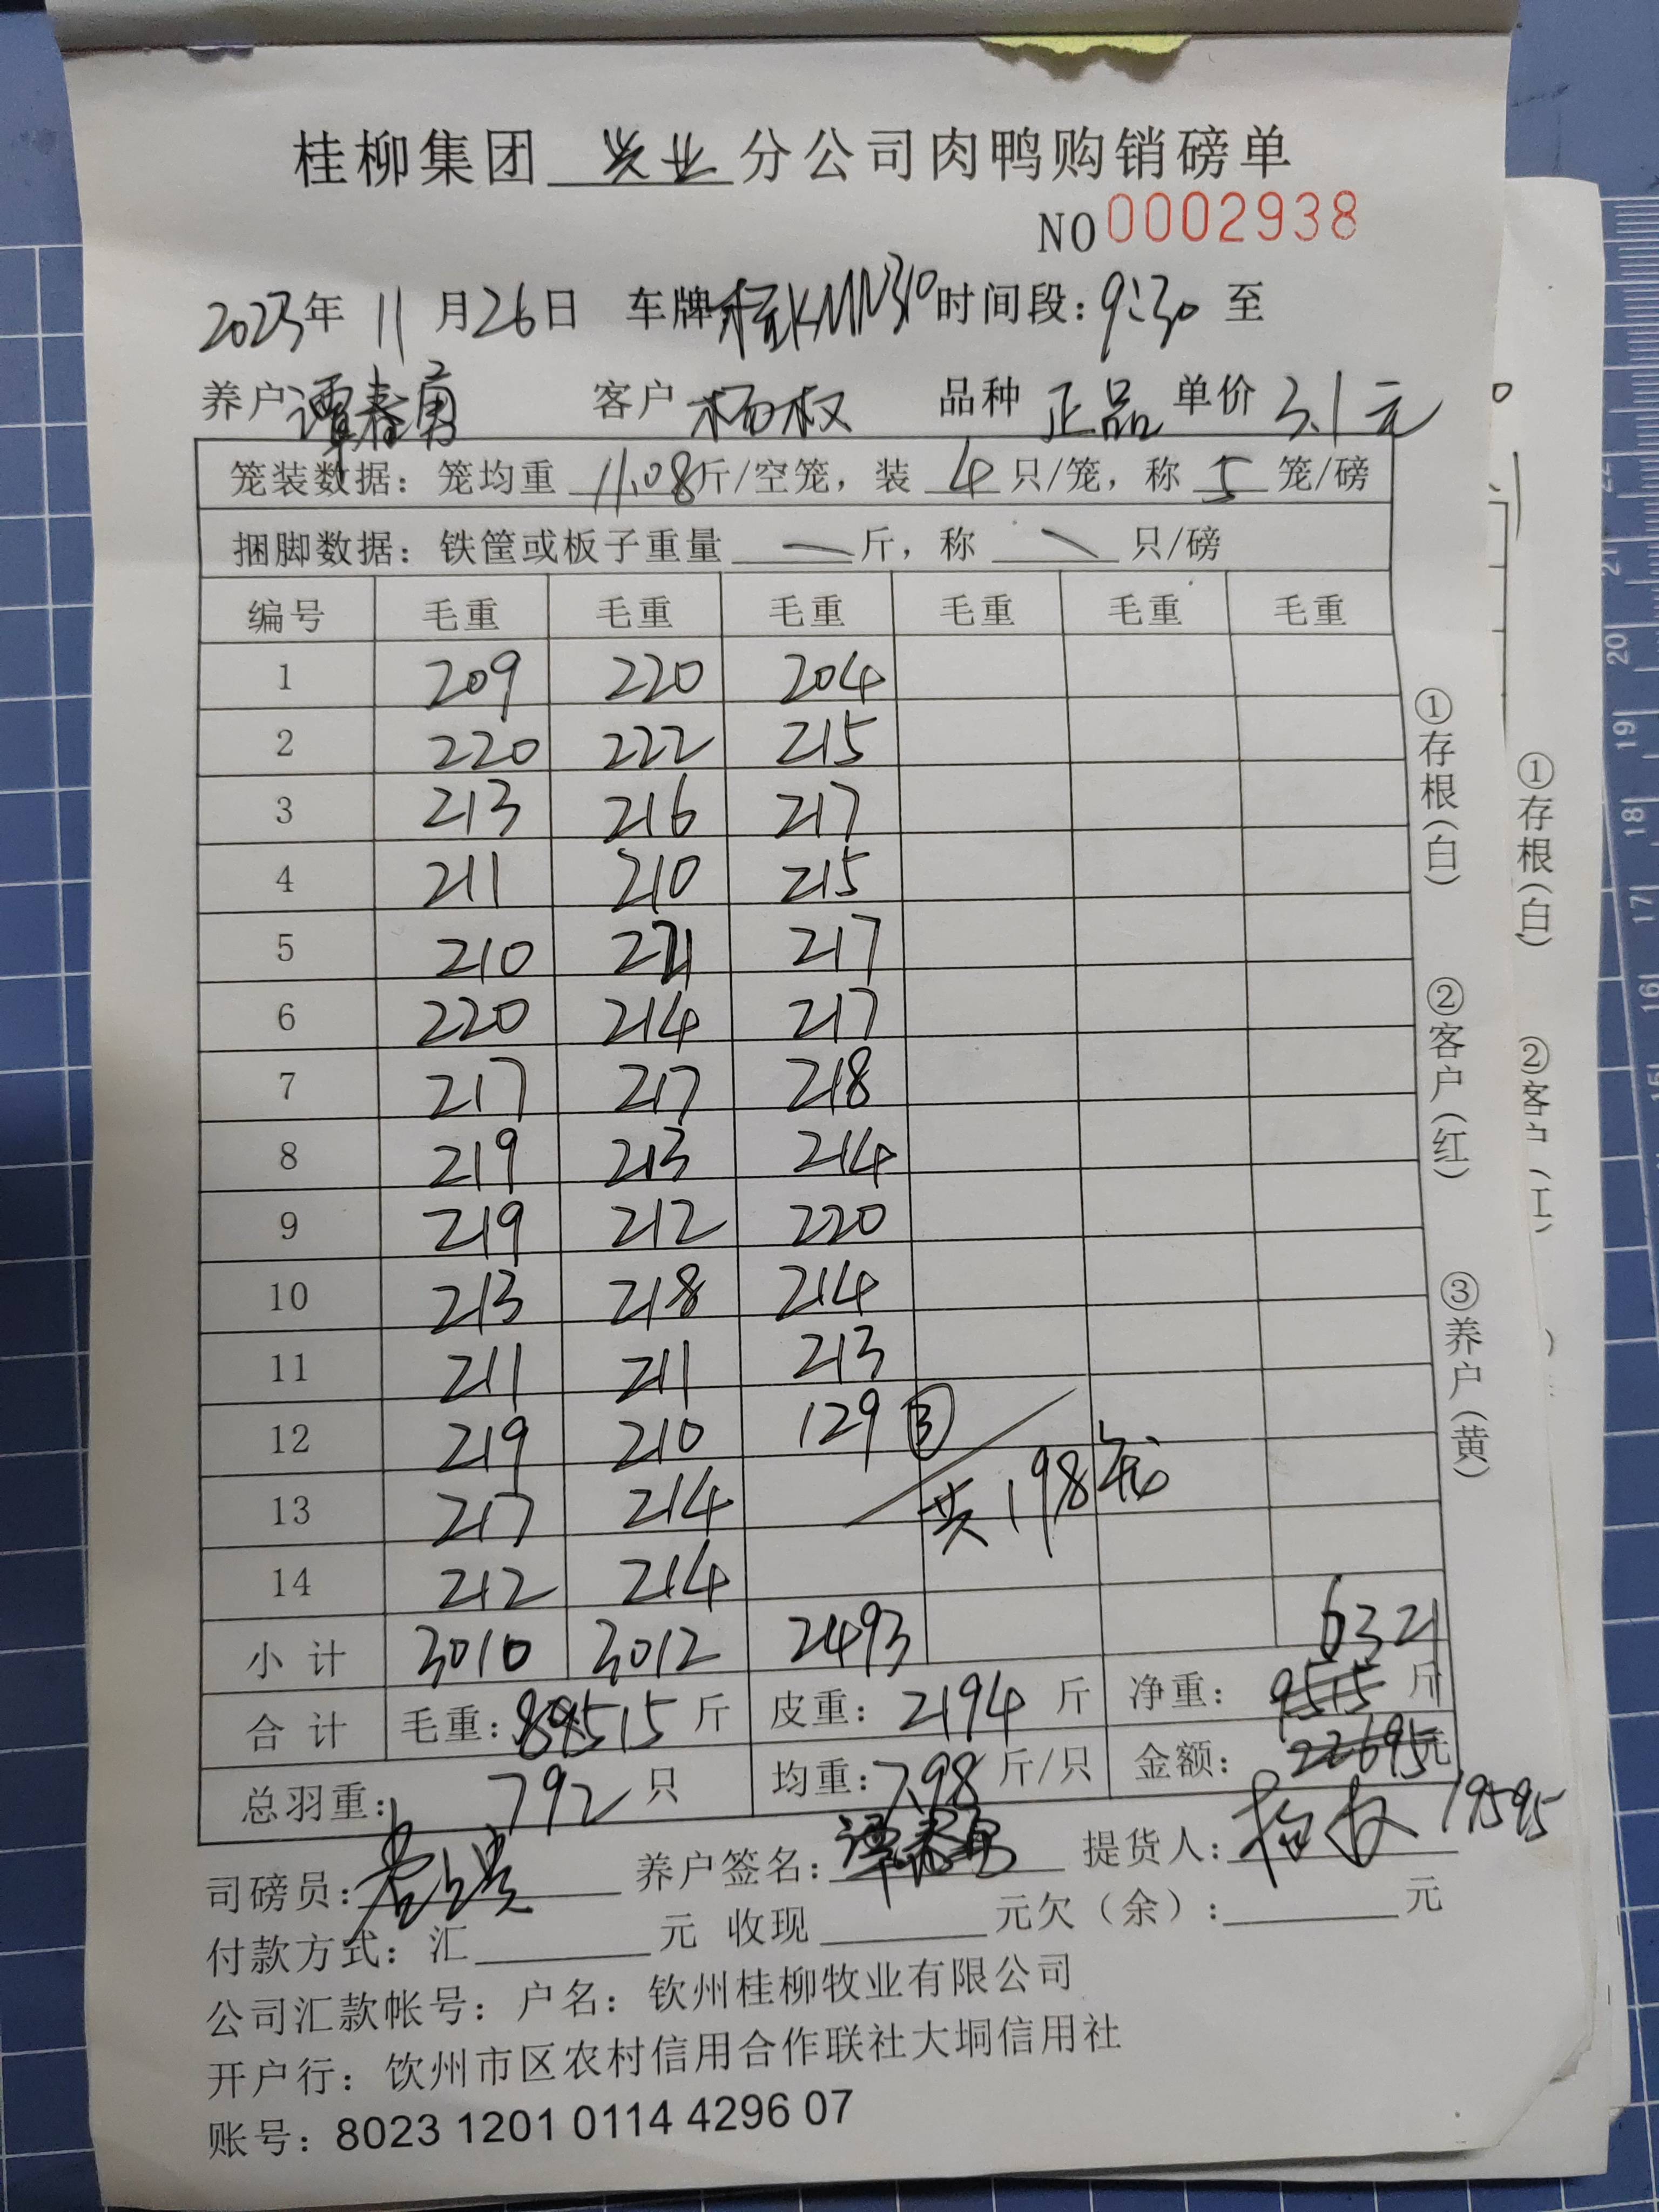 桂柳集团 兴业 分公司肉鸭购销磅单
NO 0002938
2023年 11月26日 车牌 桂KMN310 时间段：9:30 至
养户 谭春勇 客户 杨权 品种 正品 单价 3.1元
笼装数据：笼均重 11.08斤/空笼，装 4 只/笼，称 5 笼/磅
捆脚数据：铁筐或板子重量 — 斤，称 \ 只/磅
编号 毛重 毛重 毛重 毛重 毛重 毛重
1 209 220 204
2 220 222 215
3 213 216 217
4 211 210 215
5 210 221 217
6 220 214 217
7 217 217 218
8 219 213 214
9 219 212 220
10 213 218 214
11 211 211 213
12 219 210 129 ③
13 217 214 共198笼
14 212 214
小计 3010 3012 2493 6321
合计 毛重：8515斤 皮重：2194斤 净重：9515斤
总羽重：792只 均重：7.98斤/只 金额：22695元
司磅员： 养户签名：谭春勇 提货人：杨权 19595
付款方式：汇 元 收现 元欠（余）： 元
公司汇款帐号：户名：钦州桂柳牧业有限公司
开户行：钦州市区农村信用合作联社大垌信用社
账号：8023 1201 0114 4296 07
①存根（白） ②客户（红） ③养户（黄）
①存根（白） ②客户